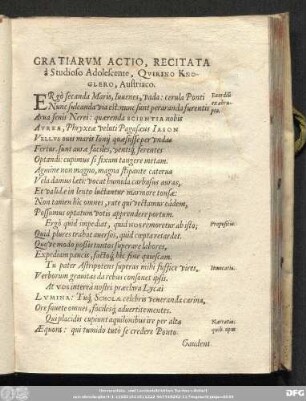 GRATIARVM ACTIO, RECITATA
à Studioso Adolescente, QVIRINO KNO-
GLERO, Austriaco.
ERgò secanda Maria, Iuuenes, vada: cerula Ponti
Nunc sulcanda via est: nunc sunt peraranda furentis
Arua senis Nerei: quærenda SCIENTIA nobis
AVREA, Phryxeæ veluti Pagasæus IASON
VELLVS ouis maris Ionij quæsisse per vndas
Fertur. sunt aura faciles, ventiq́; ferentes
Optandi: cupimus si fixam tangere metam.
Agmine non magno, magna stipante caterua
Vela damus latè: vocat humida carbasus auras,
Et valida in lento luctantur marmore tonsæ:
Non tamen hîc omnes, rate qui vectamur eâdem,
Possumus optatum votis apprendere portum.
Ergò quid impediat, quid nos remoretur ab isto;
Quid plures trahat auersos, quid cæpta retardet.
Quæ modo possis tantos superare labores,
Expediam paucis, factoq́; hîc fine quiescam.
Tu pater Astripotens superas mihi suffice vires,
Verborum grauitas da rebus consonet ipsis.
At vos interea nostri præclara Lycæi
LVMINA: Tuq́; SCHOLÆ celebris veneranda carina,
Ore fauete omnes, facilesq́; aduertite mentes.
Qui placidis cupiunt aquilonibus ire per alta
Æquora: qui tumido tutò se credere Ponto.
Gaudent
Propositio.
Inuocatio.
Narratio: